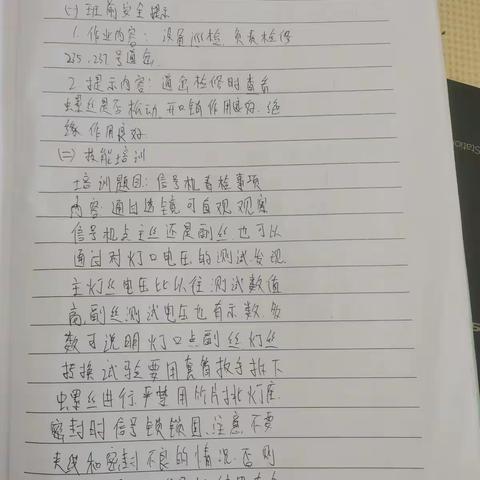 (一) 班前安全提示
1. 作业内容: 设备巡检. 负责检修
235. 237号道岔.
2. 提示内容: 道岔检修时查看
螺丝是否松动. 开口销作用良好. 绝
缘作用良好.
(二) 技能培训
培训题目: 信号机看检事项
内容: 通过透镜可直观观察
信号机点主丝还是副丝. 也可以
通过对灯口电压的测试发现.
主灯丝电压比以往测试数值
高. 副丝测试电压也有示数. 多
数可说明灯口点副丝. 灯丝
转换试验要用套筒扳手拆下
螺丝进行. 严禁用 灯座.
密封时信号锁锁固. 注意不要
夹线和密封不良的情况. 否则
Station